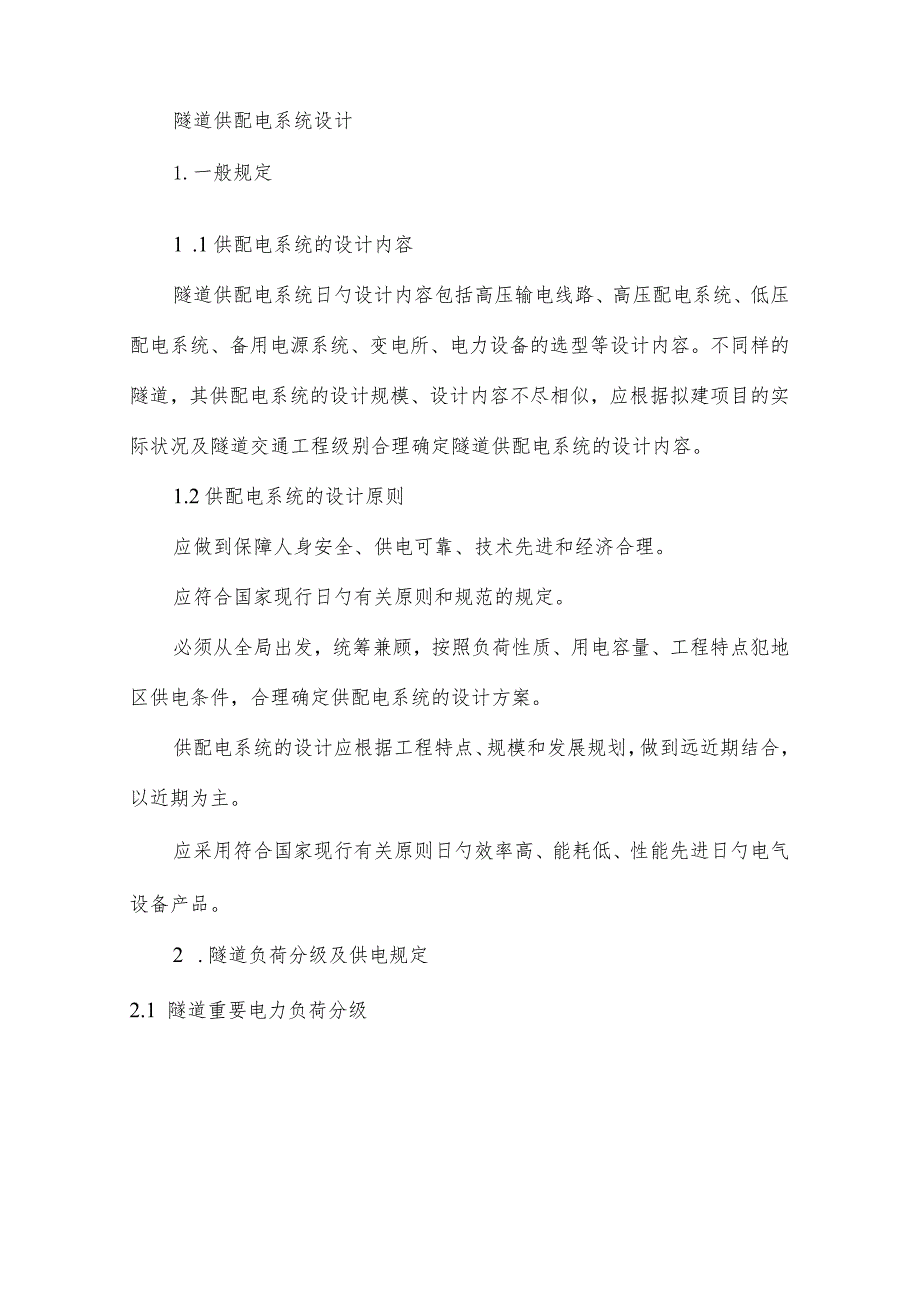 隧道供配电系统设计
1. 一般规定
1 .1 供配电系统的设计内容
隧道供配电系统日勺设计内容包括高压输电线路、高压配电系统、低压
配电系统、备用电源系统、变电所、电力设备的选型等设计内容。不同样的
隧道，其供配电系统的设计规模、设计内容不尽相似，应根据拟建项目的实
际状况及隧道交通工程级别合理确定隧道供配电系统的设计内容。
1.2 供配电系统的设计原则
应做到保障人身安全、供电可靠、技术先进和经济合理。
应符合国家现行日勺有关原则和规范的规定。
必须从全局出发，统筹兼顾，按照负荷性质、用电容量、工程特点犯地
区供电条件，合理确定供配电系统的设计方案。
供配电系统的设计应根据工程特点、规模和发展规划，做到远近期结合，
以近期为主。
应采用符合国家现行有关原则日勺效率高、能耗低、性能先进日勺电气
设备产品。
2 . 隧道负荷分级及供电规定
2.1 隧道重要电力负荷分级